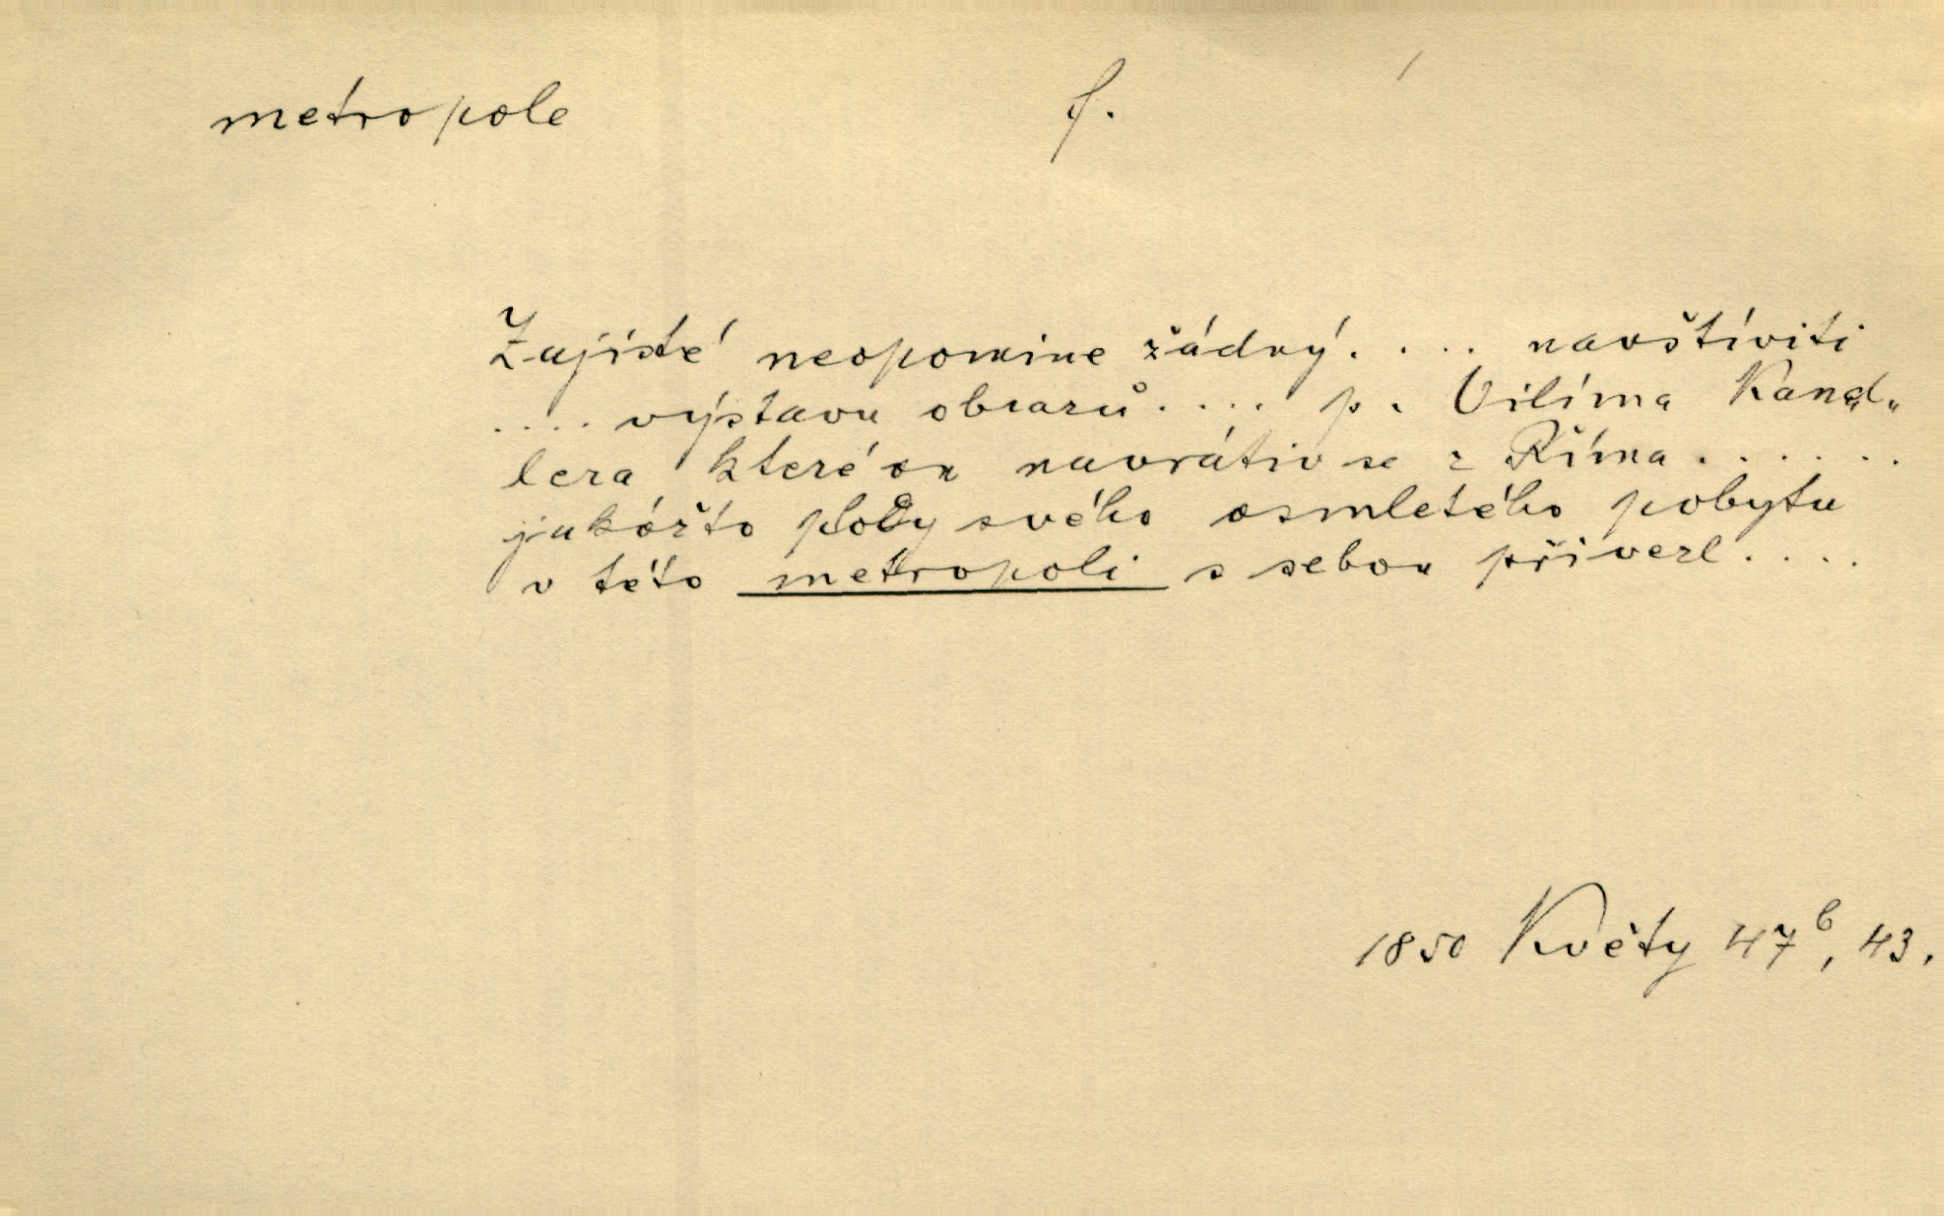 metropole f.
Zajisté neopomine žádný. . . . navštíviti
. . . . výstavu obrazů. . . . p. Vilíma Kand„
lera které on navrátiv se z Říma. . . . . .
jakóžto plody svého osmletého pobytu
v této metropoli s sebou přivezl. . . .
1850 Květy 47b, 43.